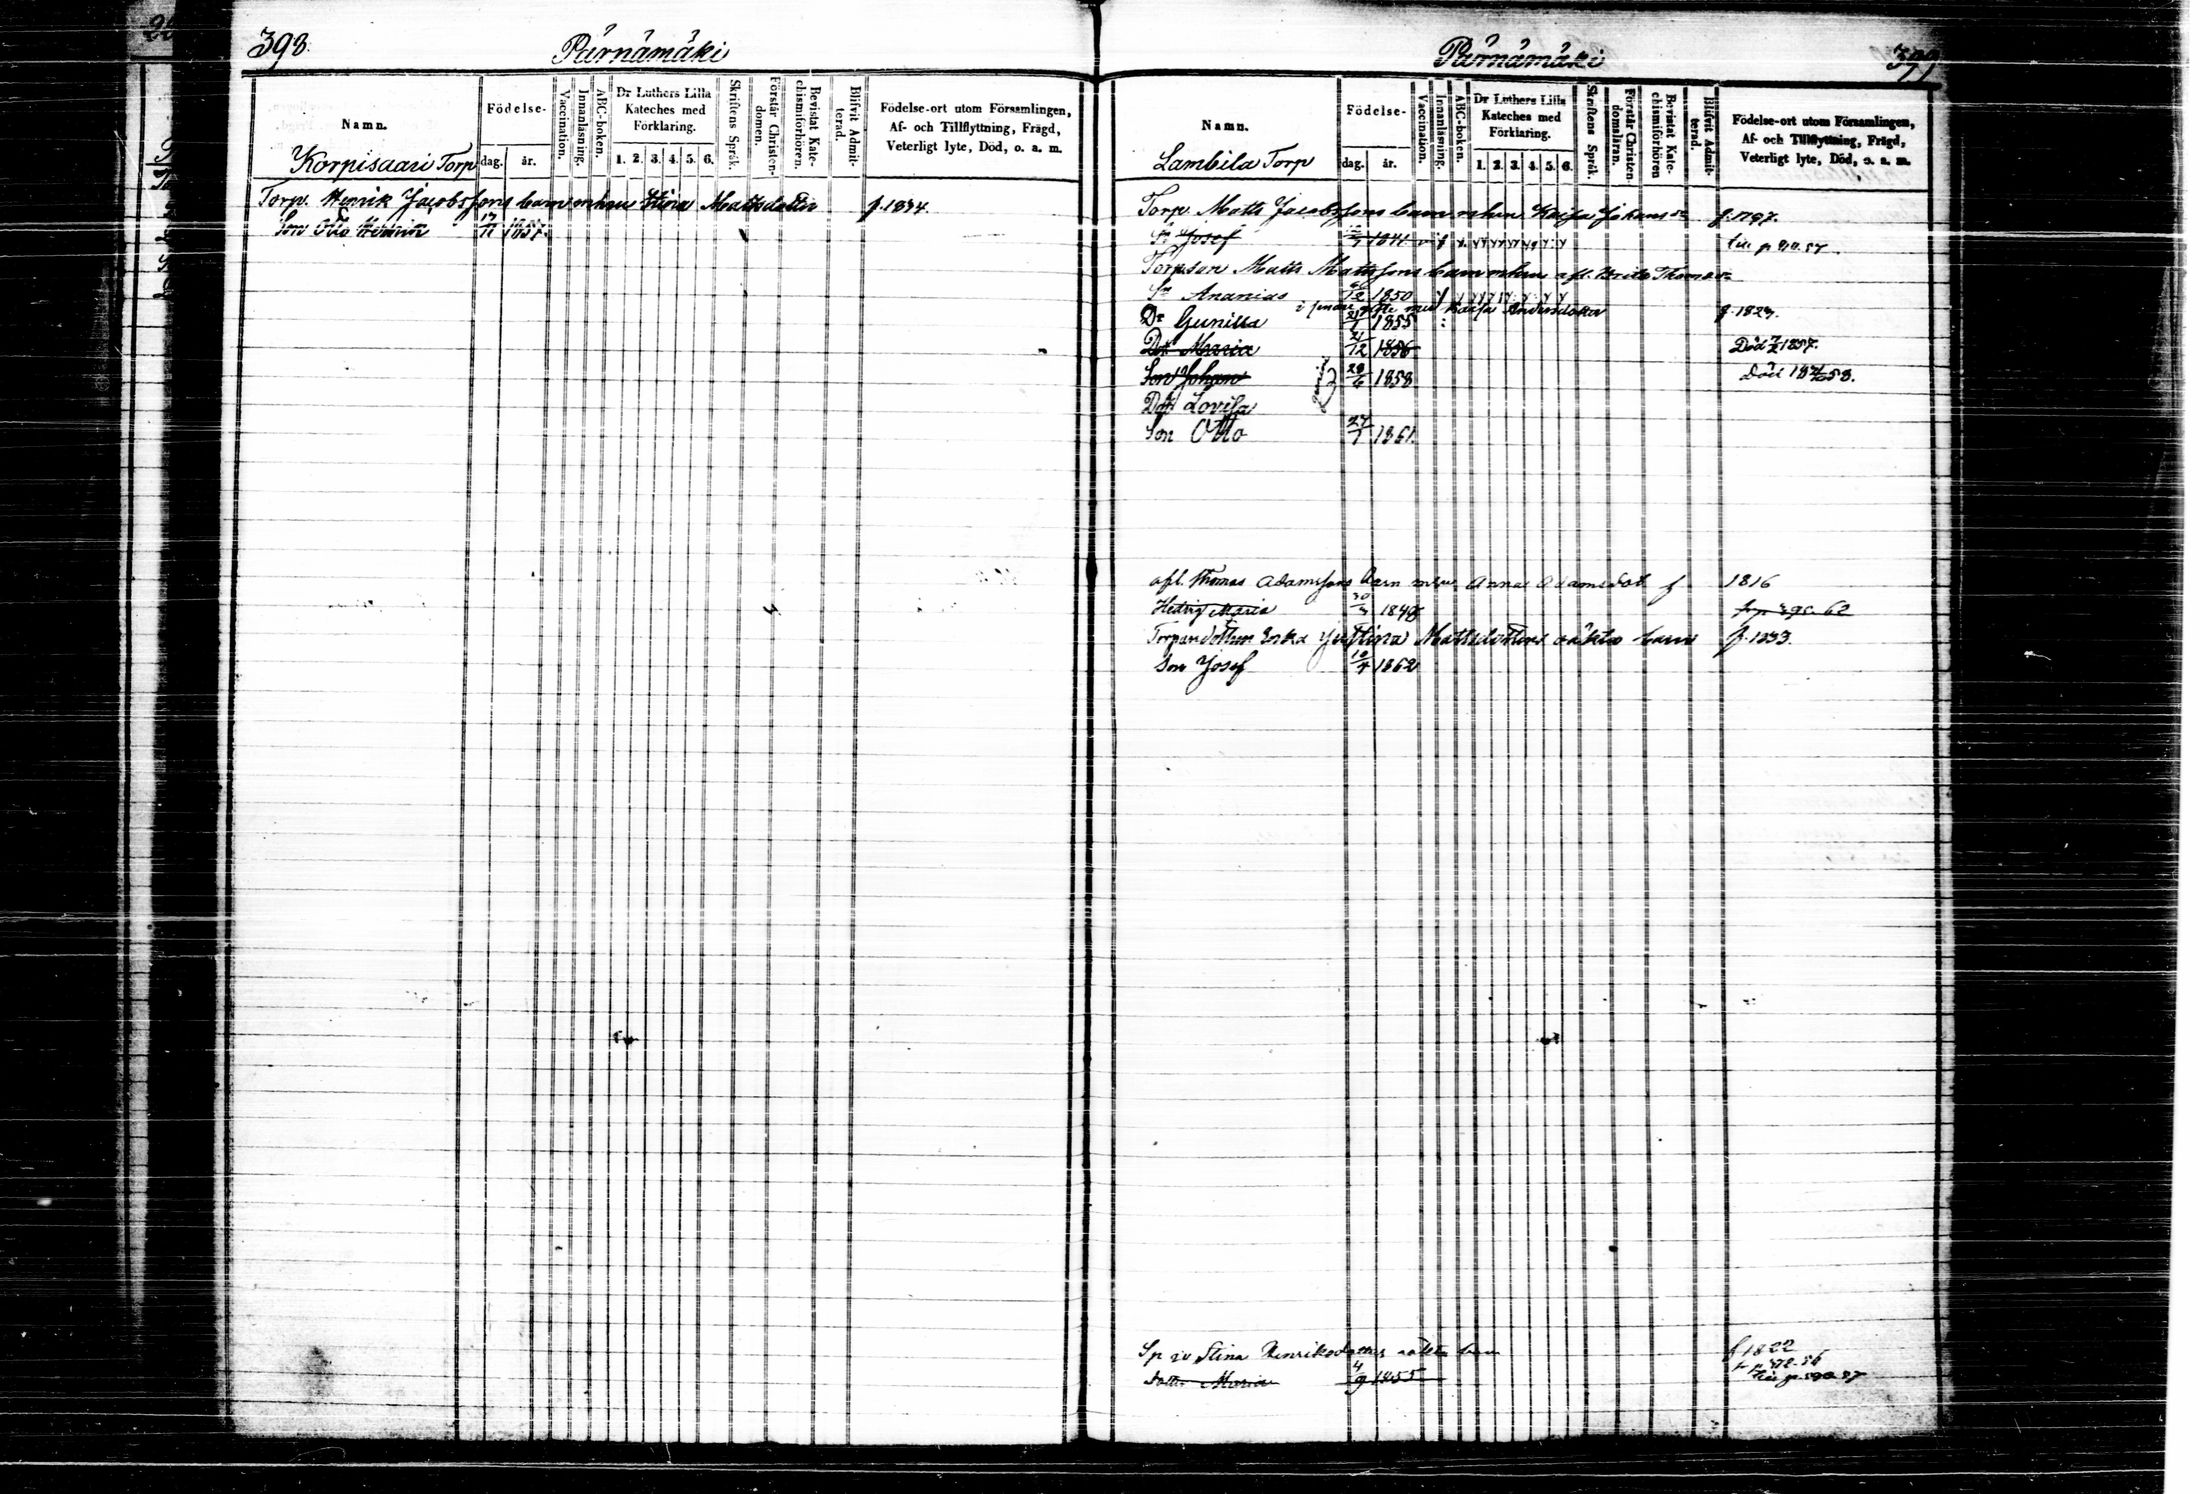 398.
Pärnämäki
Namn.
Födelse-
dag. år.
Vaccination.
Innanläsning.
ABC-boken.
Dr Luthers Lilla Kateches med Förklaring.
1. 2. 3. 4. 5. 6.
Skriftens Språk.
Förstår Christendomen.
Bevistat Katechismiförhören.
Blifvit Admitterad.
Födelse-ort utom Församlingen, Af- och Tillflyttning, Frägd, Veterligt lyte, Död, o. a. m.
Korpisaari Torp
Torp. Henrik Jacobssons barn m hu Stina Mattsdotter f. 1834.
Son Otto Henrik 1857.
Pärnämäki
399
Namn.
Födelse-
dag. år.
Vaccination.
Innanläsning.
ABC-boken.
Dr Luthers Lilla Kateches med Förklaring.
1. 2. 3. 4. 5. 6.
Skriftens Språk.
Förstår Christendomsläran.
Bevistat Katechismiförhören
Blifvit Admitterad.
Födelse-ort utom Församlingen, Af- och Tillflyttning, Frägd, Veterligt lyte, Död, o. a. m.
Lambila Torp
Torp. Matts Jacobssons barn m hu Kaisa Johansdr f. 1797.
Sn Josef 1841
Torpson Matts Mattssons barn m hu afl. Brita Thomasdr
Sn Ananias 12 1850
i senare gifte med Kaisa Andersdotter f. 1823.
Dr Gunilla 21/1 1855
Dr Maria 21/12 1856 Död 1857.
Son Johan 28/6 1858 Död 58.
Dr Lovisa
Son Otto 27/1 1861.
afl. Thomas Adamssons barn m hu Anna Adamsdot f 1816
Hedvig Maria 30/3 1848
Torpardottren Erika Justina Mattsdotters oäkta barn f. 1833.
Son Josef 1862
Stina Henriksdotters oäkta barn f 1822
Dotter Maria 4/9 1855